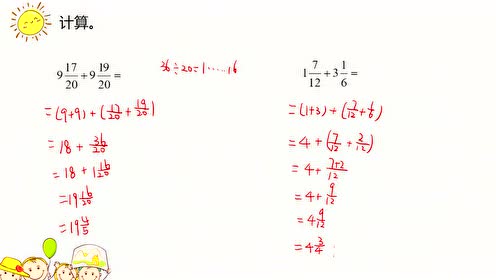 计算。
9 17/20 + 9 19/20 =
36÷20=1……16
=(9+9)+(17/20+19/20)
=18+36/20
=18+1 16/20
=19 16/20
=19 4/5
1 7/12 + 3 1/6 =
=(1+3)+(7/12+1/6)
=4+(7/12+2/12)
=4+(7+2)/12
=4+9/12
=4 9/12
=4 3/4